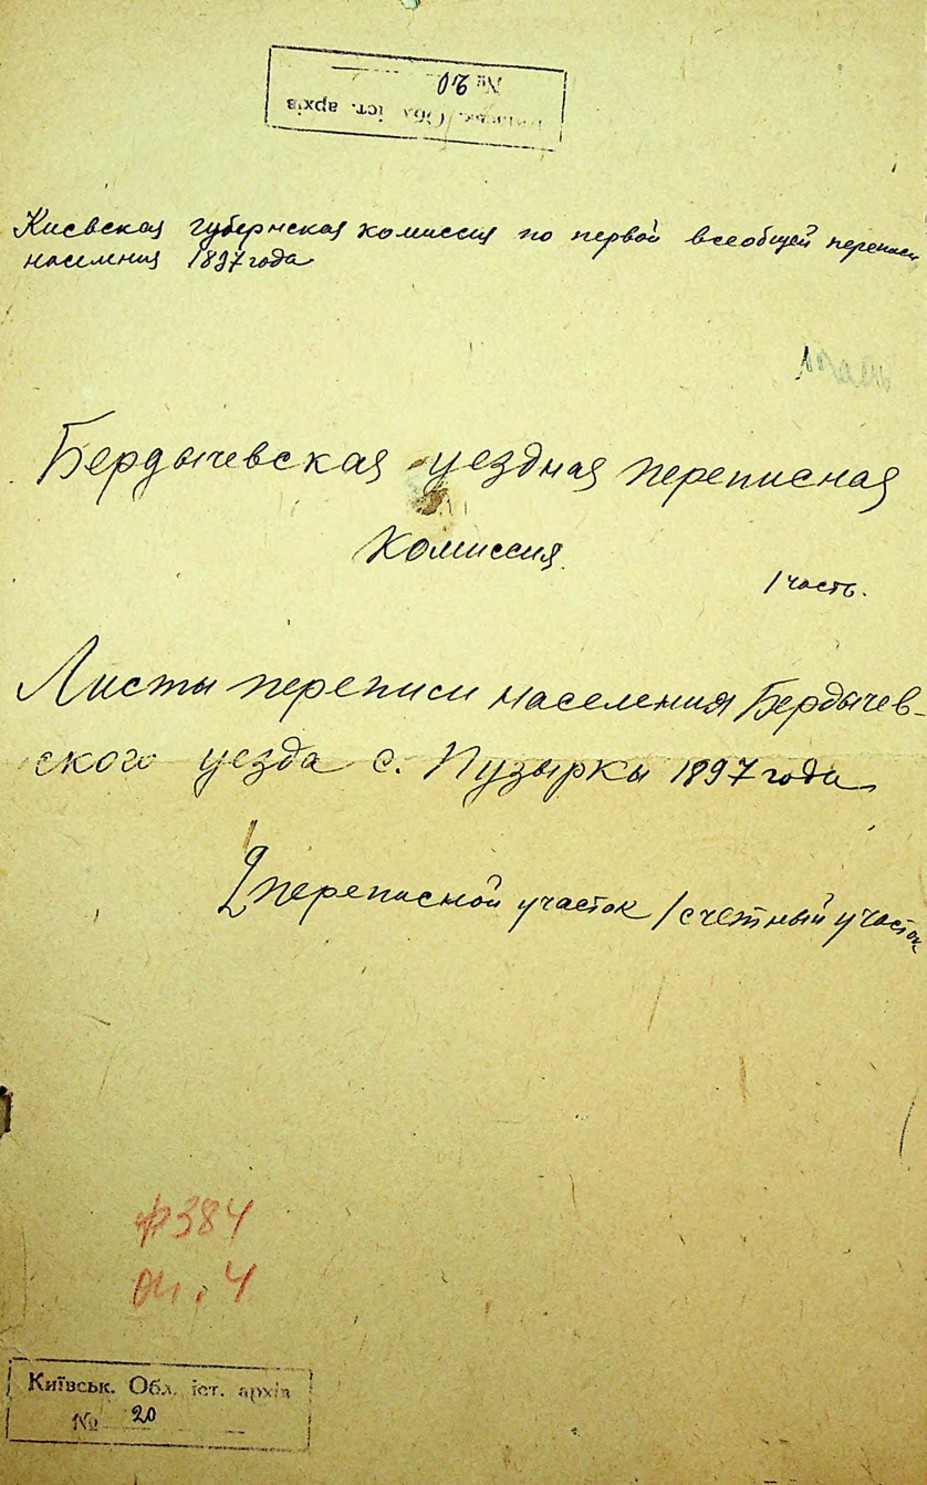 Київськ. Обл. іст. архів
№ 20
Киевская губернская комиссия по первой всеобщей переписи
населения 1897 года
Бердычевская уездная переписная
комиссия.
1 часть.
Листы переписи населения Бердычев-
ского уезда с. Пузырки 1897 года
2 переписной участок 1 счетный участок
ф 384
оп. 4
Київськ. Обл. іст. архів
№ 20